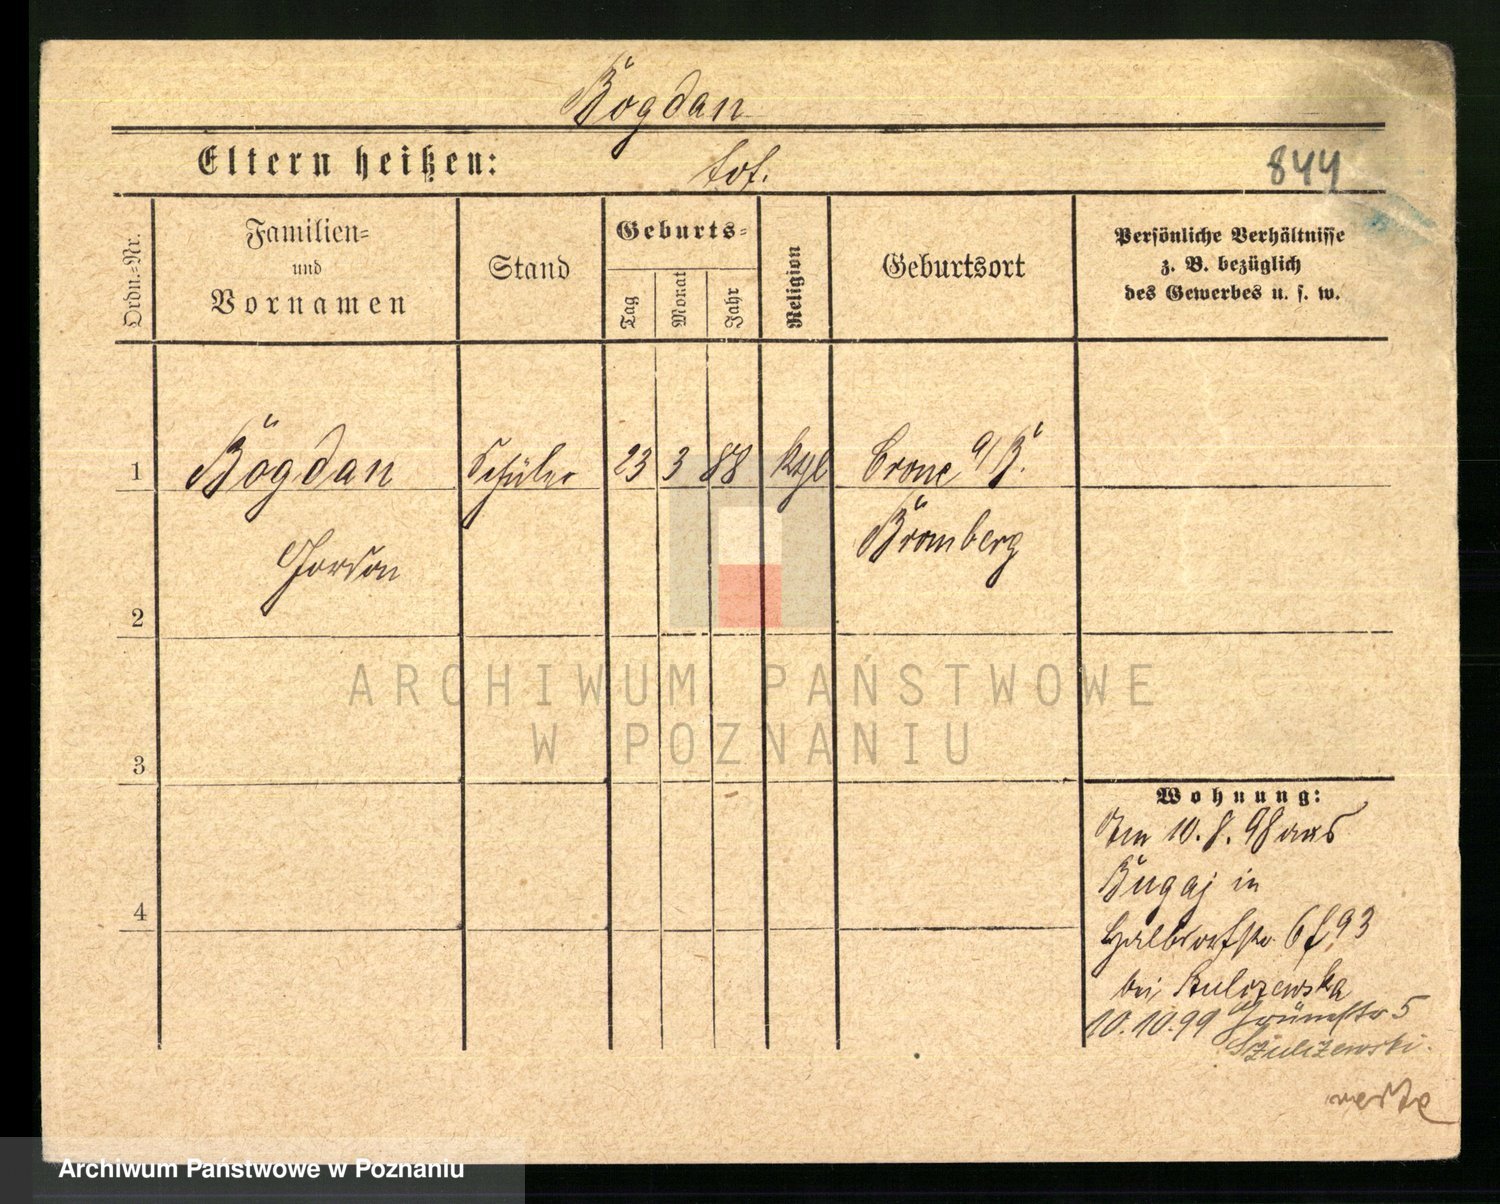 Bogdan
Eltern heißen:
tot.
844
Ordn.=Nr.
Familien=
und
Vornamen
Stand
Geburts=
Tag
Monat
Jahr
Religion
Geburtsort
Persönliche Verhältnisse
z. B. bezüglich
des Gewerbes u. s. w.
1
Bogdan
Schüler
23
3
88
Crone a/B.
Bromberg
2
ARCHIWUM PAŃSTWOWE
W POZNANIU
3
Wohnung:
10. 8. 98 aus
Bugaj in
Halbdorfstr. 6
bei Sulczewska
4
10. 10. 99 Grünestr 5
Szulczewski.
verte
Archiwum Państwowe w Poznaniu